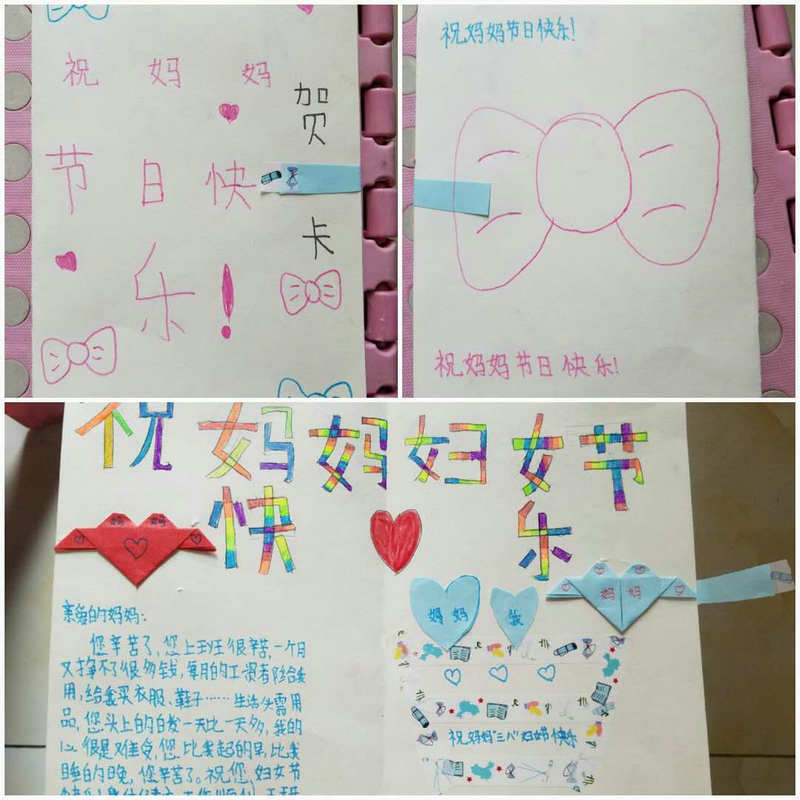 祝 妈 妈
节 日 快
乐!
贺
卡
祝妈妈节日快乐!
祝妈妈节日快乐!
祝妈妈妇女节
快乐
妈 妈
亲爱的妈妈:
您辛苦了,您上班很辛苦,一个月
又挣不了很多钱,每月的工资都给我
用,给我买衣服、鞋子……生活必需用
品,您头上的白发一天比一天多,我的
心很是难受,您比我起的早,比我
睡的晚,您辛苦了。祝您,妇女节
快乐!
妈妈
我
妈妈
祝妈妈"三八"妇女节快乐